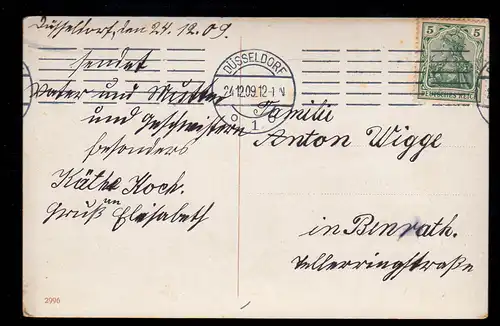 Düsseldorf, den 24.12.09.
sendet
Vater und Mutter
und Geschwistern
besonders
Käthe Koch.
Gruß an Elisabeth
DÜSSELDORF
24.12.09.12-1N
1
5 5
DEUTSCHES REICH
Familie
Anton Wigge
in Benrath.
Tellerringstraße
2996